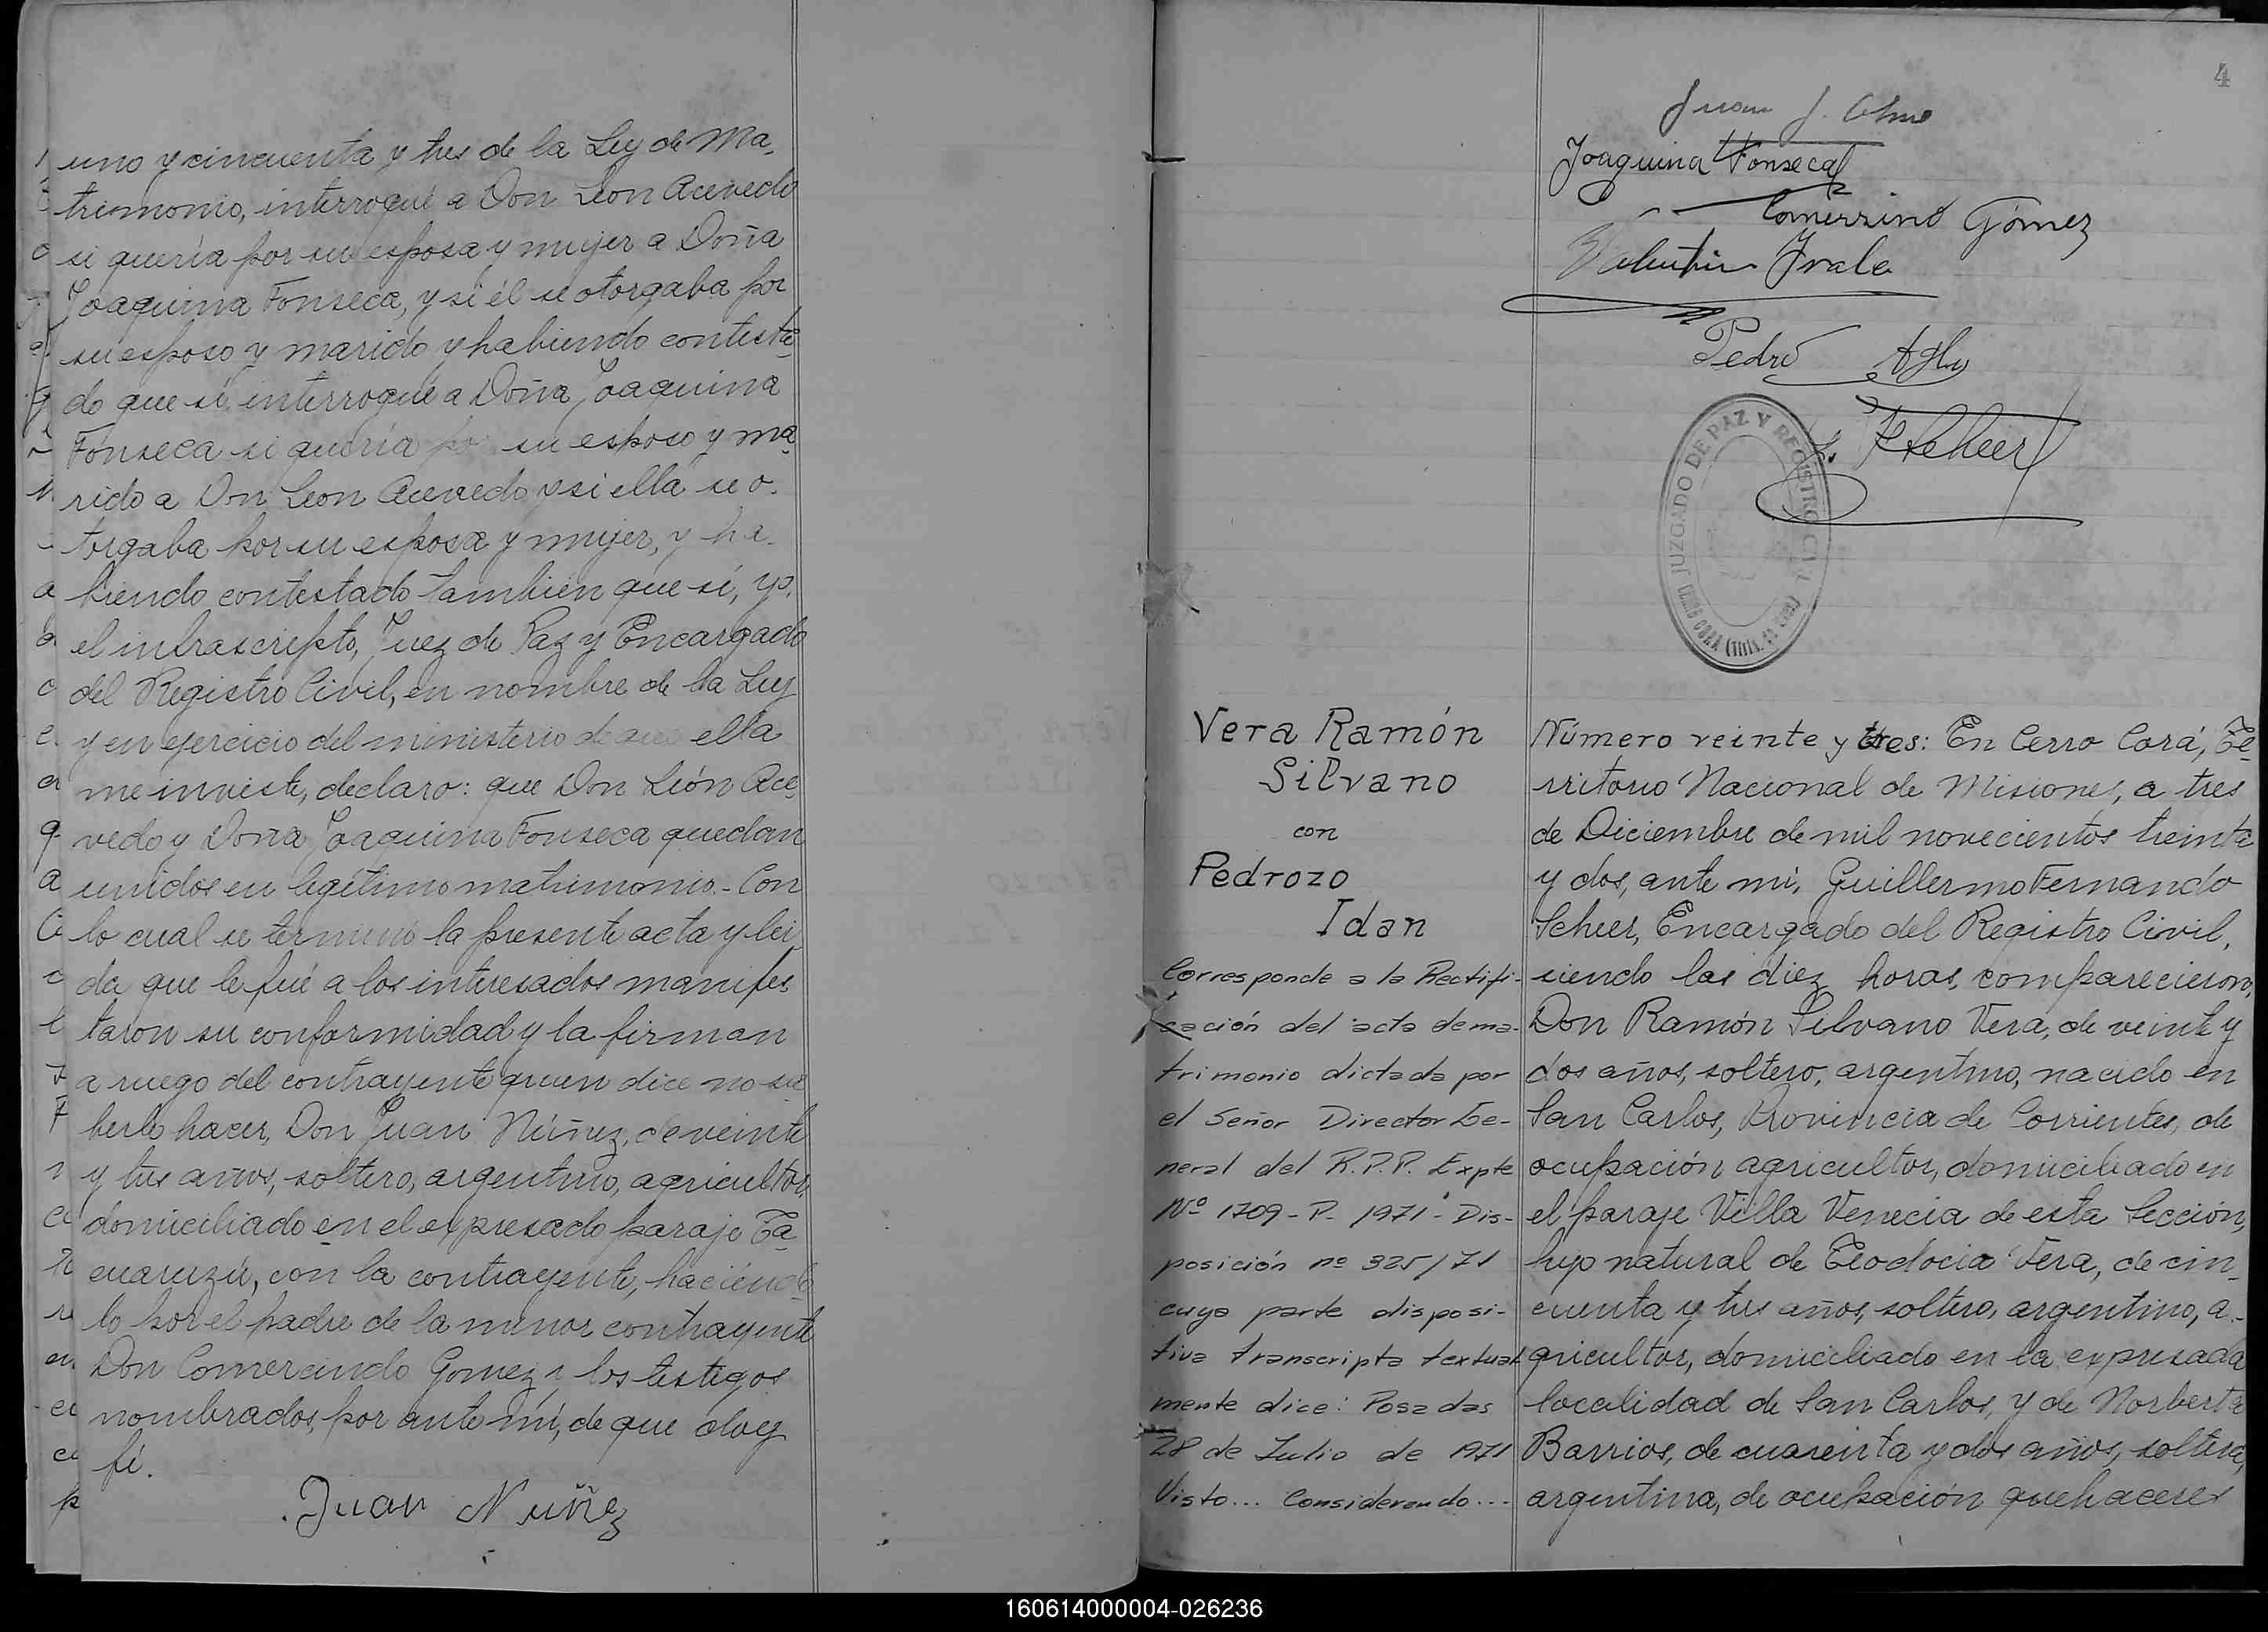 uno y cincuenta y tres de la Ley de Ma-
trimonio, interrogué a Don Leon Acevedo
si quería por su esposa y mujer a Doña
Joaquina Fonseca, y si él se otorgaba por
su esposo y marido y habiendo contesta-
do que sí, interrogué a Doña Joaquina
Fonseca si quería por su esposo y ma-
rido a Don Leon Acevedo y si ella se o-
torgaba por su esposa y mujer, y ha-
biendo contestado tambien que sí, yo,
el infrascripto, Juez de Paz y Encargado
del Registro Civil, en nombre de la Ley
y en ejercicio del ministerio de que ella
me inviste, declaro: que Don León Ace-
vedo y Doña Joaquina Fonseca quedan
unidos en legítimo matrimonio.- Con
lo cual se terminó la presente acta y leí-
da que le fué a los interesados manifes-
taron su conformidad y la firman
a ruego del contrayente quien dice no sa-
berlo hacer, Don Juan Núñez, de veinte
y tres años, soltero, argentino, agricultor,
domiciliado en el expresado paraje Ta-
cuaruzú, con la contrayente, haciéndo-
lo por el padre de la menor contrayente
Don Comercindo Gomez y los testigos
nombrados, por ante mí, de que doy
fé.
Juan Nuñez
4
Juan J.
Joaquina Fonseca
Comerzindo Gómez
Valentin Irala
Pedro
Scheer
JUZGADO DE PAZ Y REGISTRO CIVIL
CERRO CORÁ
Vera Ramón
Silvano
con
Pedrozo
Idan
Corresponde a la Rectifi-
cación del acta de ma-
trimonio dictada por
el Señor Director Ge-
neral del R.P.P. Expte
Nº 1709-P- 1971- Dis-
posición nº 325/71
cuya parte disposi-
tiva transcripta textual
mente dice: Posadas
28 de Julio de 1971
Visto... Considerando...
Número veinte y tres: En Cerro Corá, Te-
rritorio Nacional de Misiones, a tres
de Diciembre de mil novecientos treinta
y dos, ante mí, Guillermo Fernando
Scheer, Encargado del Registro Civil,
siendo las diez horas, comparecieron,
Don Ramón Silvano Vera, de veinte y
dos años, soltero, argentino, nacido en
San Carlos, Provincia de Corrientes, de
ocupación agricultor, domiciliado en
el paraje Villa Venecia de esta Sección,
hijo natural de Teodocio Vera, de cin-
cuenta y tres años, soltero, argentino, a-
gricultor, domiciliado en la expresada
localidad de San Carlos, y de Norberta
Barrios, de cuarenta y dos años, soltera,
argentina, de ocupación quehaceres
160614000004-026236